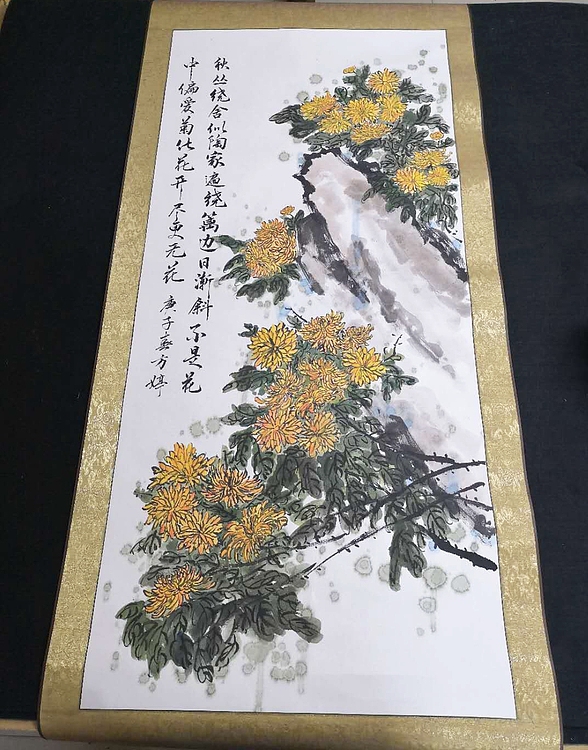 秋丛绕舍似陶家遍绕萬边日渐斜不是花
中偏爱菊此花开尽更无花 庚子夏方婷